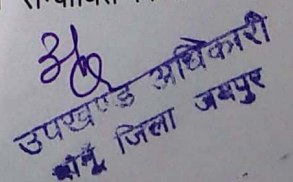 उपखण्ड अधिकारी
चौमूं जिला जयपुर